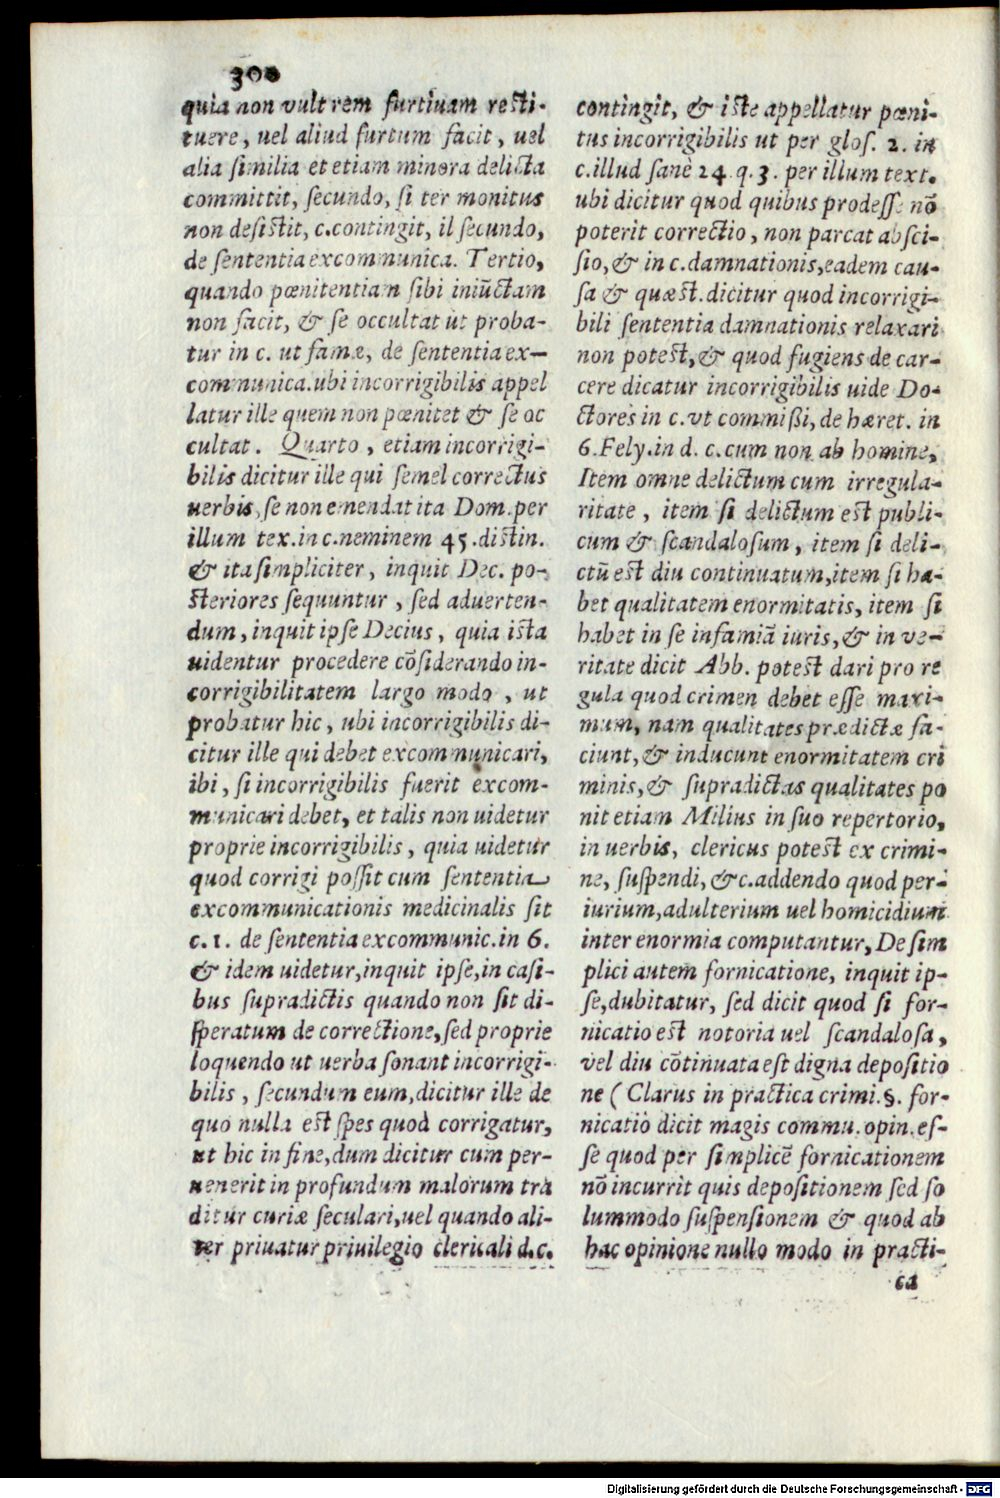 300
quia non vult rem furtiuam resti-
tuere, uel aliud furtum facit, uel
alia similia et etiam minora delicta
committit, secundo, si ter monitus
non desistit, c.contingit, il secundo,
de sententia excommunica. Tertio,
quando pœnitentiam sibi iniūctam
non facit, & se occultat ut proba-
tur in c. ut famæ, de sententia ex-
communica.ubi incorrigibilis appel
latur ille quem non pœnitet & se oc
cultat. Quarto, etiam incorrigi-
bilis dicitur ille qui semel correctus
uerbis, se non emendat ita Dom. per
illum tex. in c.neminem 45.distin.
& ita simpliciter, inquit Dec. po-
steriores sequuntur, sed aduerten-
dum, inquit ipse Decius, quia ista
uidentur procedere cōsiderando in-
corrigibilitatem largo modo, ut
probatur hic, ubi incorrigibilis di-
citur ille qui debet excommunicari,
ibi, si incorrigibilis fuerit excom-
municari debet, et talis non uidetur
proprie incorrigibilis, quia uidetur
quod corrigi possit cum sententia
excommunicationis medicinalis sit
c.1. de sententia excommunic.in 6.
& idem uidetur, inquit ipse, in casi-
bus supradictis quando non sit di-
speratum de correctione, sed proprie
loquendo ut uerba sonant incorrigi-
bilis, secundum eum, dicitur ille de
quo nulla est spes quod corrigatur,
ut hic in fine, dum dicitur cum per-
uenerit in profundum malorum tra
ditur curiæ seculari, uel quando ali-
ter priuatur priuilegio clericali d.c.
contingit, & iste appellatur pœni-
tus incorrigibilis ut per glos. 2. in
c.illud sanè 24. q. 3. per illum text.
ubi dicitur quod quibus prodesse nō
poterit correctio, non parcat absci-
sio, & in c.damnationis, eadem cau-
sa & quæst. dicitur quod incorrigi-
bili sententia damnationis relaxari
non potest, & quod fugiens de car-
cere dicatur incorrigibilis uide Do-
ctores in c.vt commißi, de hæret. in
6. Fely. in d. c.cum non ab homine,
Item omne delictum cum irregula-
ritate, item si delictum est publi-
cum & scandalosum, item si deli-
ctū est diu continuatum, item si ha-
bet qualitatem enormitatis, item si
habet in se infamiā iuris, & in ve-
ritate dicit Abb. potest dari pro re
gula quod crimen debet esse maxi-
mum, nam qualitates prædictæ fa-
ciunt, & inducunt enormitatem cri
minis, & supradictas qualitates po
nit etiam Milius in suo repertorio,
in uerbis, clericus potest ex crimi-
ne, suspendi, &c.addendo quod per-
iurium, adulterium uel homicidium
inter enormia computantur, De sim
plici autem fornicatione, inquit ip-
se, dubitatur, sed dicit quod si for-
nicatio est notoria uel scandalosa,
vel diu cōtinuata est digna depositio
ne ( Clarus in practica crimi.§. for-
nicatio dicit magis commu. opin. es-
se quod per simplicē fornicationem
nō incurrit quis depositionem sed so
lummodo suspensionem & quod ab
hac opinione nullo modo in practi-
ca
Digitalisierung gefördert durch die Deutsche Forschungsgemeinschaft - DFG